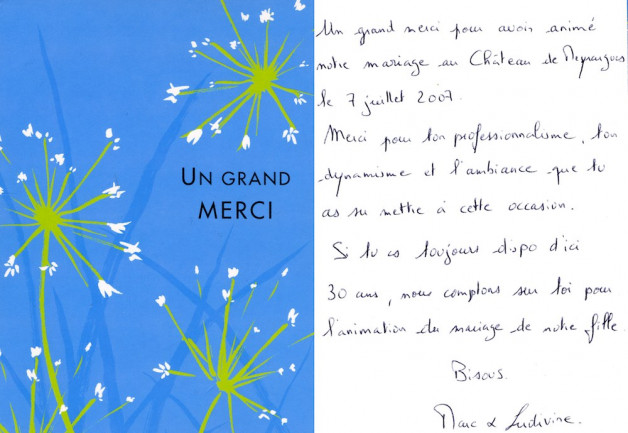 UN GRAND
MERCI
Un grand merci pour avoir animé
notre mariage au Château de Meyrargues
le 7 juillet 2007.
Merci pour ton professionnalisme, ton
dynamisme et l'ambiance que tu
as su mettre à cette occasion.
Si tu es toujours dispo d'ici
30 ans, nous comptons sur toi pour
l'animation du mariage de notre fille.
Bisous.
Marc & Ludivine.